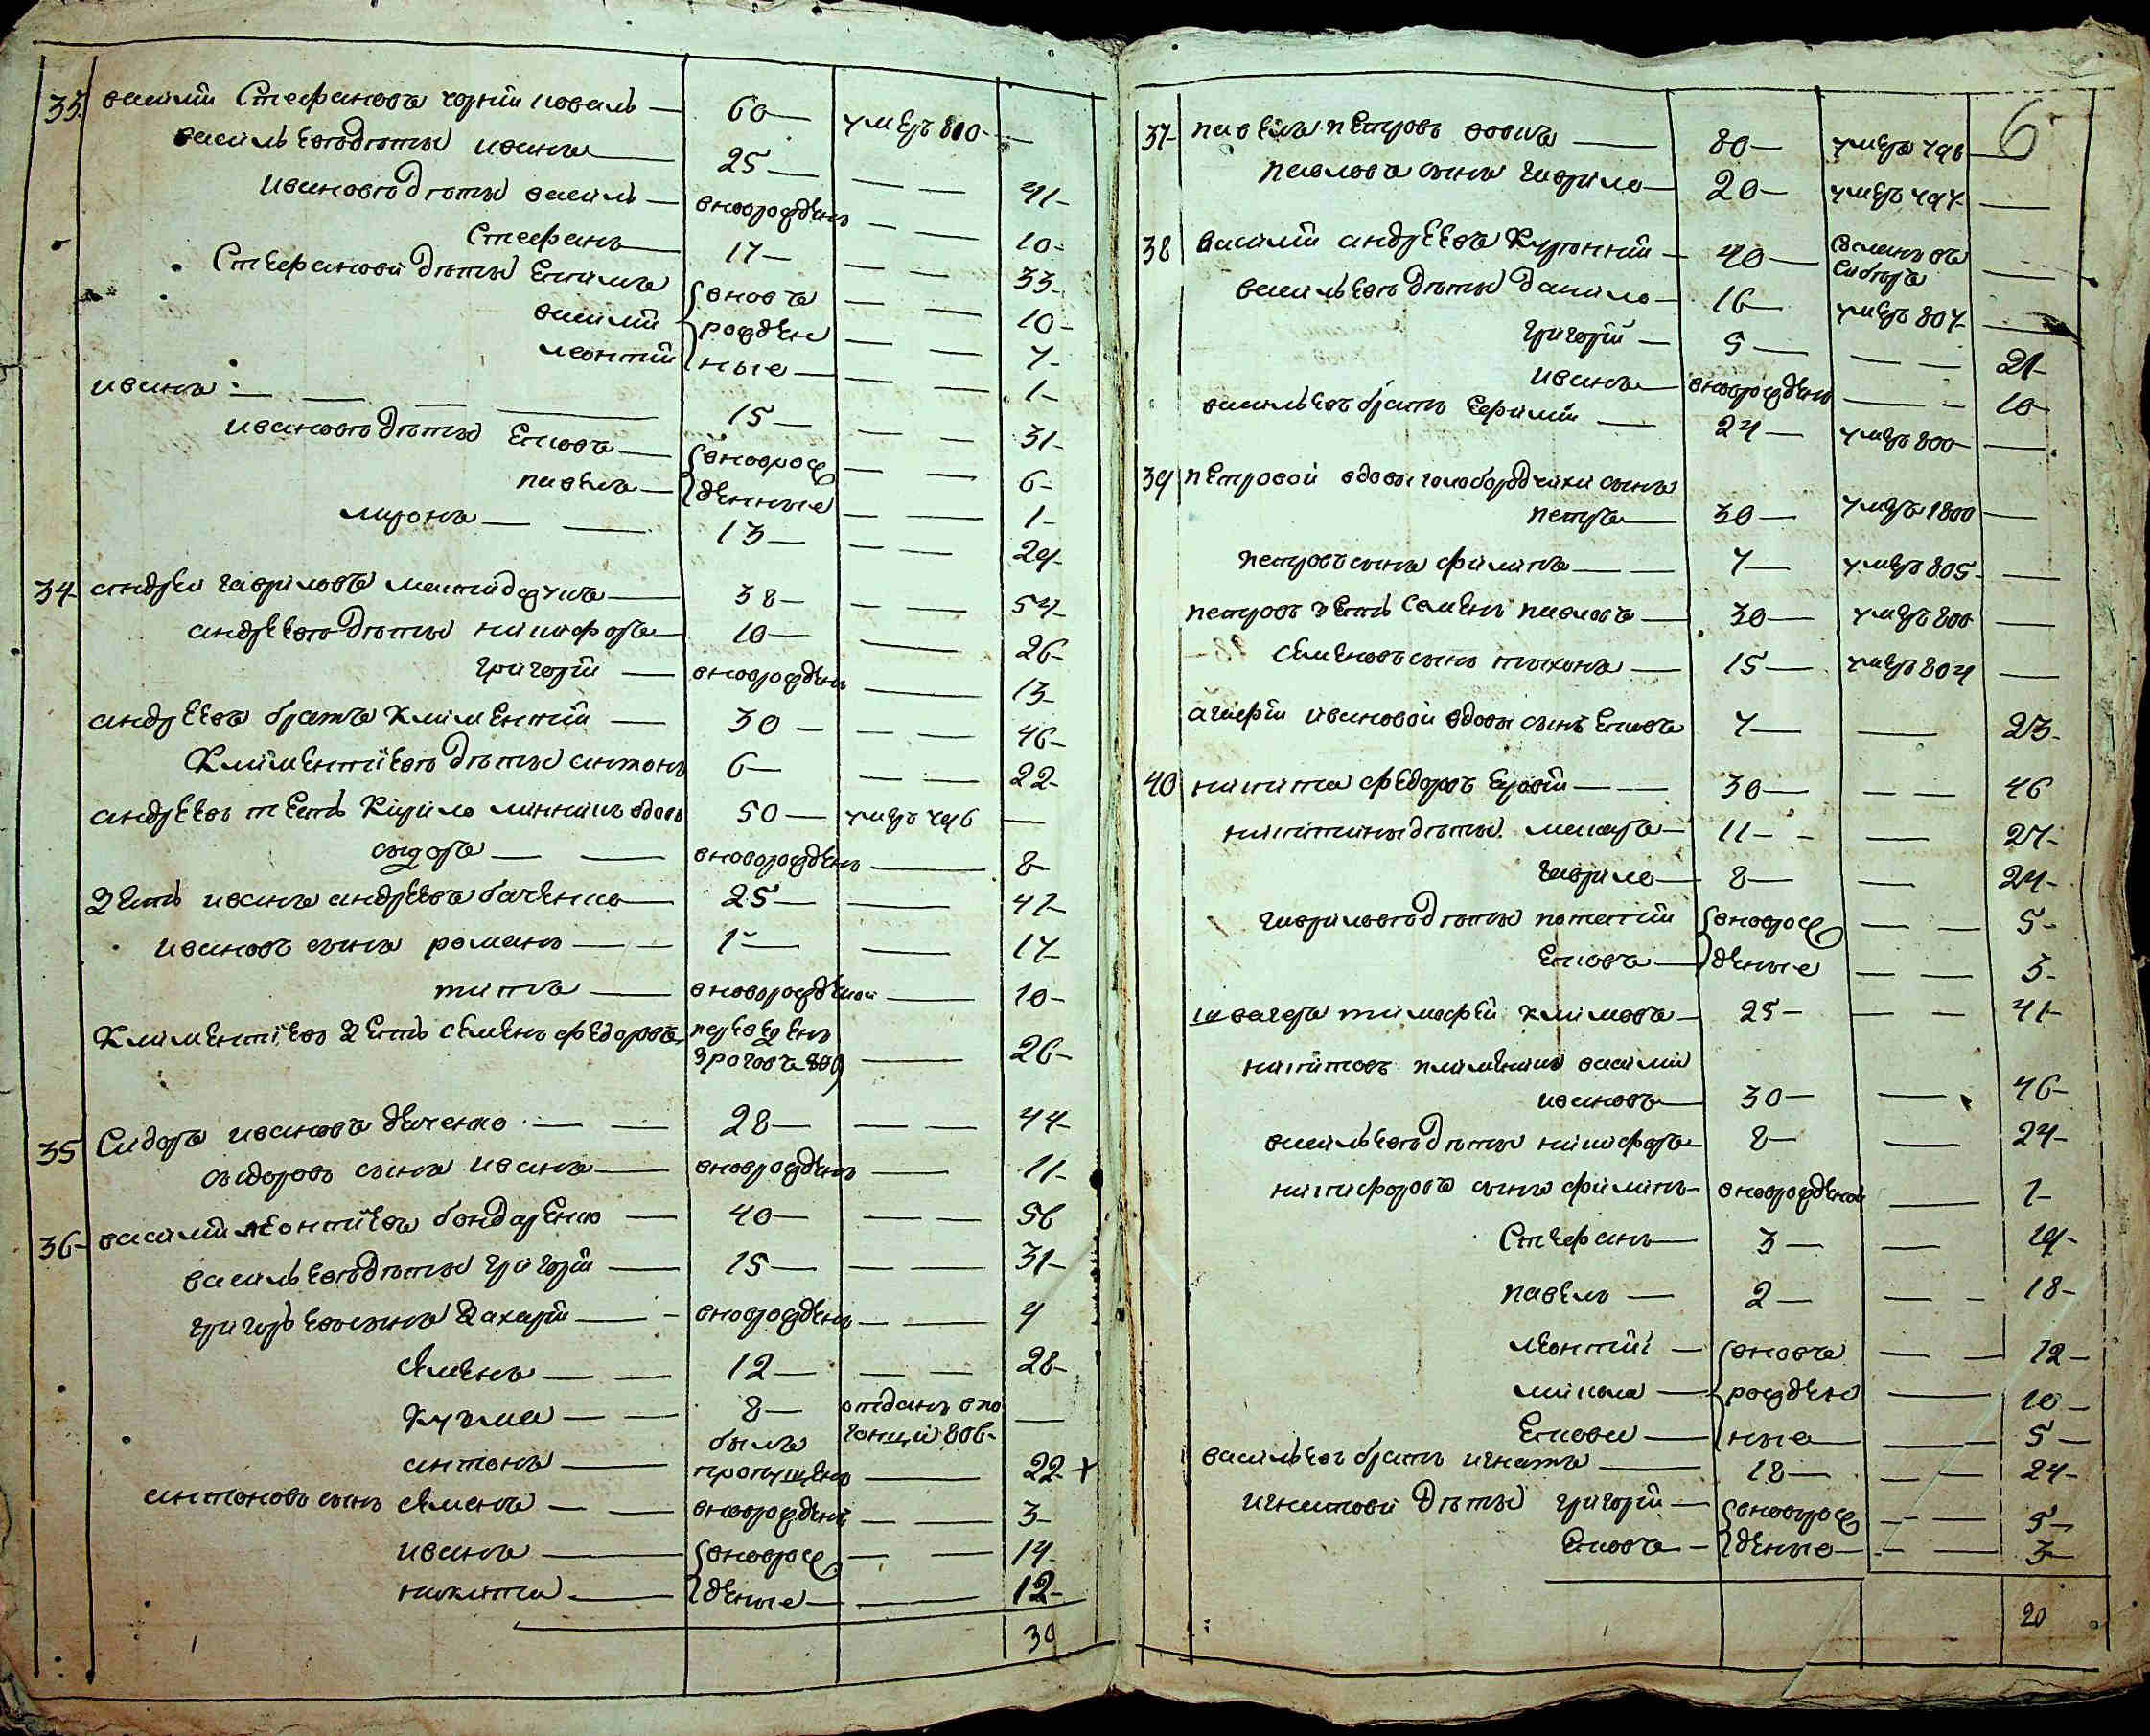 33. василий Стефановъ чорний коваль — 60 — умеръ 800 —
васильевы дѣты иванъ — 25 — — — 41
ивановы дѣты василь — вноврожденъ — — 10
Стефанъ — 17 — — — 33
Стефановы дѣты Екимъ { вновъ — — 10
василий { рожден — — 7
леонтий { ные — — — 1
иванъ: — — — 15 — — — 31
ивановы дѣты Яковъ — { вноврож — — 6
павелъ — { денные — — 1
миронъ — — 13 — — — 29
34 андрей гавриловъ — 38 — — — 54
андреевы дѣты никифоръ 10 — — 26
григорий — вноврожденъ — 13
андреевъ братъ климентий — 30 — — — 46
климентиевы дѣты антонъ 6 — — — 22
андреевъ тесть кирило — 50 — умеръ 796 —
сидоръ — — вноврожденъ — 8
зять иванъ андреевъ баченко — 25 — — 41
ивановъ сынъ романъ — — 1 — — 17
титъ — вноврожденой — 10
климентиевъ зять семенъ федоровъ переведенъ
— 26
35 Сидоръ ивановъ дяченко — — 28 — — — 44
сидоровъ сынъ иванъ — вноврожденъ — 11
36 василий леонтиевъ бондаренко — 40 — — — 56
васильевы дѣты григорий — 15 — — — 31
григорьевъ сынъ захарий — — вноврожденъ — — 4
семенъ — — 12 — — — 28
кузма — — 8 — отданъ в по
гонщики 806 —
антонъ — былъ
пропущенъ — 22 +
антоновъ сынъ семенъ — — вноврожденъ — — 3
иванъ — { вноврож — — 14
никита — { деные — — 12
30
6
37 павелъ петровъ вовкъ — 80 — умеръ 796 —
павловъ сынъ гаврило — 20 — умеръ 797 —
38 василий андреевъ — 40 — Сосланъ въ
Сибиръ —
васильевы дѣты данило — 16 — умеръ 807 —
григорий — 5 — — — 21
иванъ — вноврожденъ — — 10
васильевъ братъ ефимий — 24 — умеръ 800 —
39 петровой вдовы голобородчихи сынъ
петръ — 30 — умеръ 1800 —
петровъ сынъ филипъ — — 7 — умеръ 805 —
петровъ зять Семенъ павловъ — 30 — умеръ 800 —
семеновъ сынъ тихонъ — 15 — умеръ 804 —
агафии ивановой вдовы сынъ Яковъ 7 — — 23
40 никита федоровъ — — 30 — — — 46
никитины дѣты макаръ — 11 — — 27
гаврило — 8 — — 24
гавриловы дѣты потапий { вноврож — — 5
Яковъ — { деные — — 3
швагеръ тимофей климовъ — 25 — — — 41
никитовъ племеникъ василий
ивановъ — 30 — — 46
васильевы дѣты никифоръ — 8 — — 24
никифоровъ сынъ филипъ — вноврожденой — 1
Стефанъ — 3 — — 19
павелъ — 2 — — — 18
леонтий — { вновъ — — 12
микола — { рожден — 10
Якови — { ные — — 5
васильевъ братъ игнатъ — 18 — — — 24
игнатови дѣты григорий — { вноврож — — 5
Яковъ — { деные — — 3
20